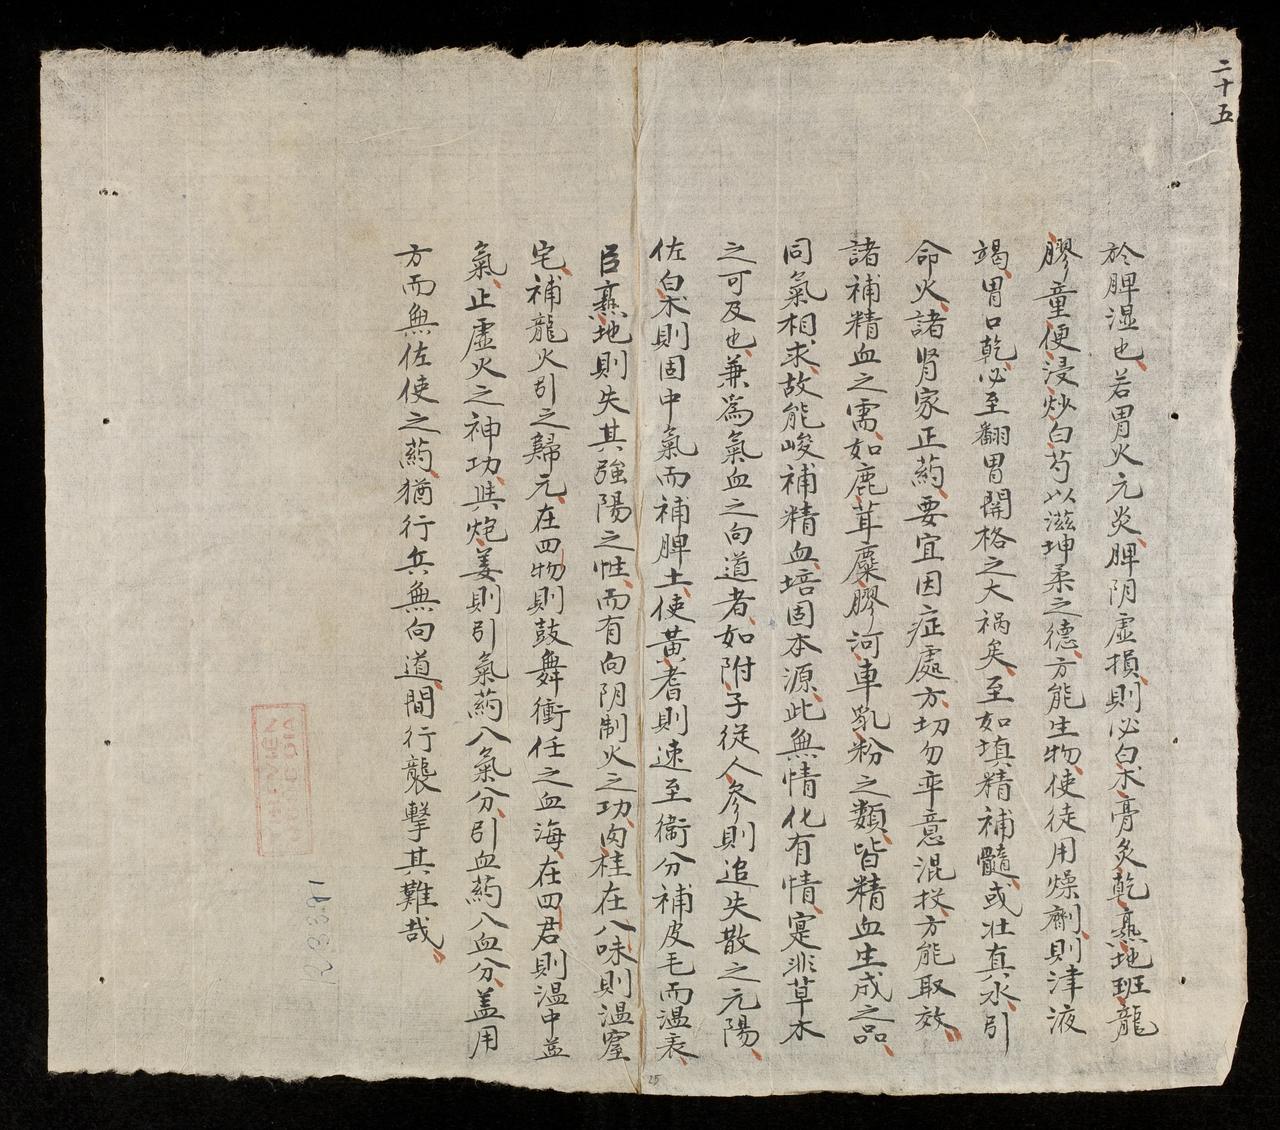 二十五
於脾湿也、若胃火元炎、脾阴虚損則必白朮膏炙乾熟地班龍
膠童便浸炒白芍以滋坤柔之德、方能生物、使徒用燥劑則津液
竭、胃口乾、必至翻胃関格之大祸矣、至如填精補髓、或壮真水、引
命火、諸肾家正葯、要宜因症處方、切勿率意混投、方能取效、
諸補精血之需、如鹿茸麋膠河車乳粉之類、皆精血生成之品、
同氣相求、故能峻補精血、培固本源、此無情化有情、寔非草木
之可及也、兼爲氣血之向道者、如附子從人參則追失散之元陽、
佐白朮則固中氣而補脾土、使黃耆則速至衞分補皮毛而温表、
臣熟地則失其強陽之性、而有向阴制火之功、肉桂在八味則温窟
宅、補龍火引之歸元、在四物則鼓舞衝任之血海、在四君則温中益
氣、止虛火之神功、與炮姜則引氣葯入氣分、引血葯入血分、盖用
方而無佐使之葯、猶行兵無向道、間行襲擊其難哉、
25